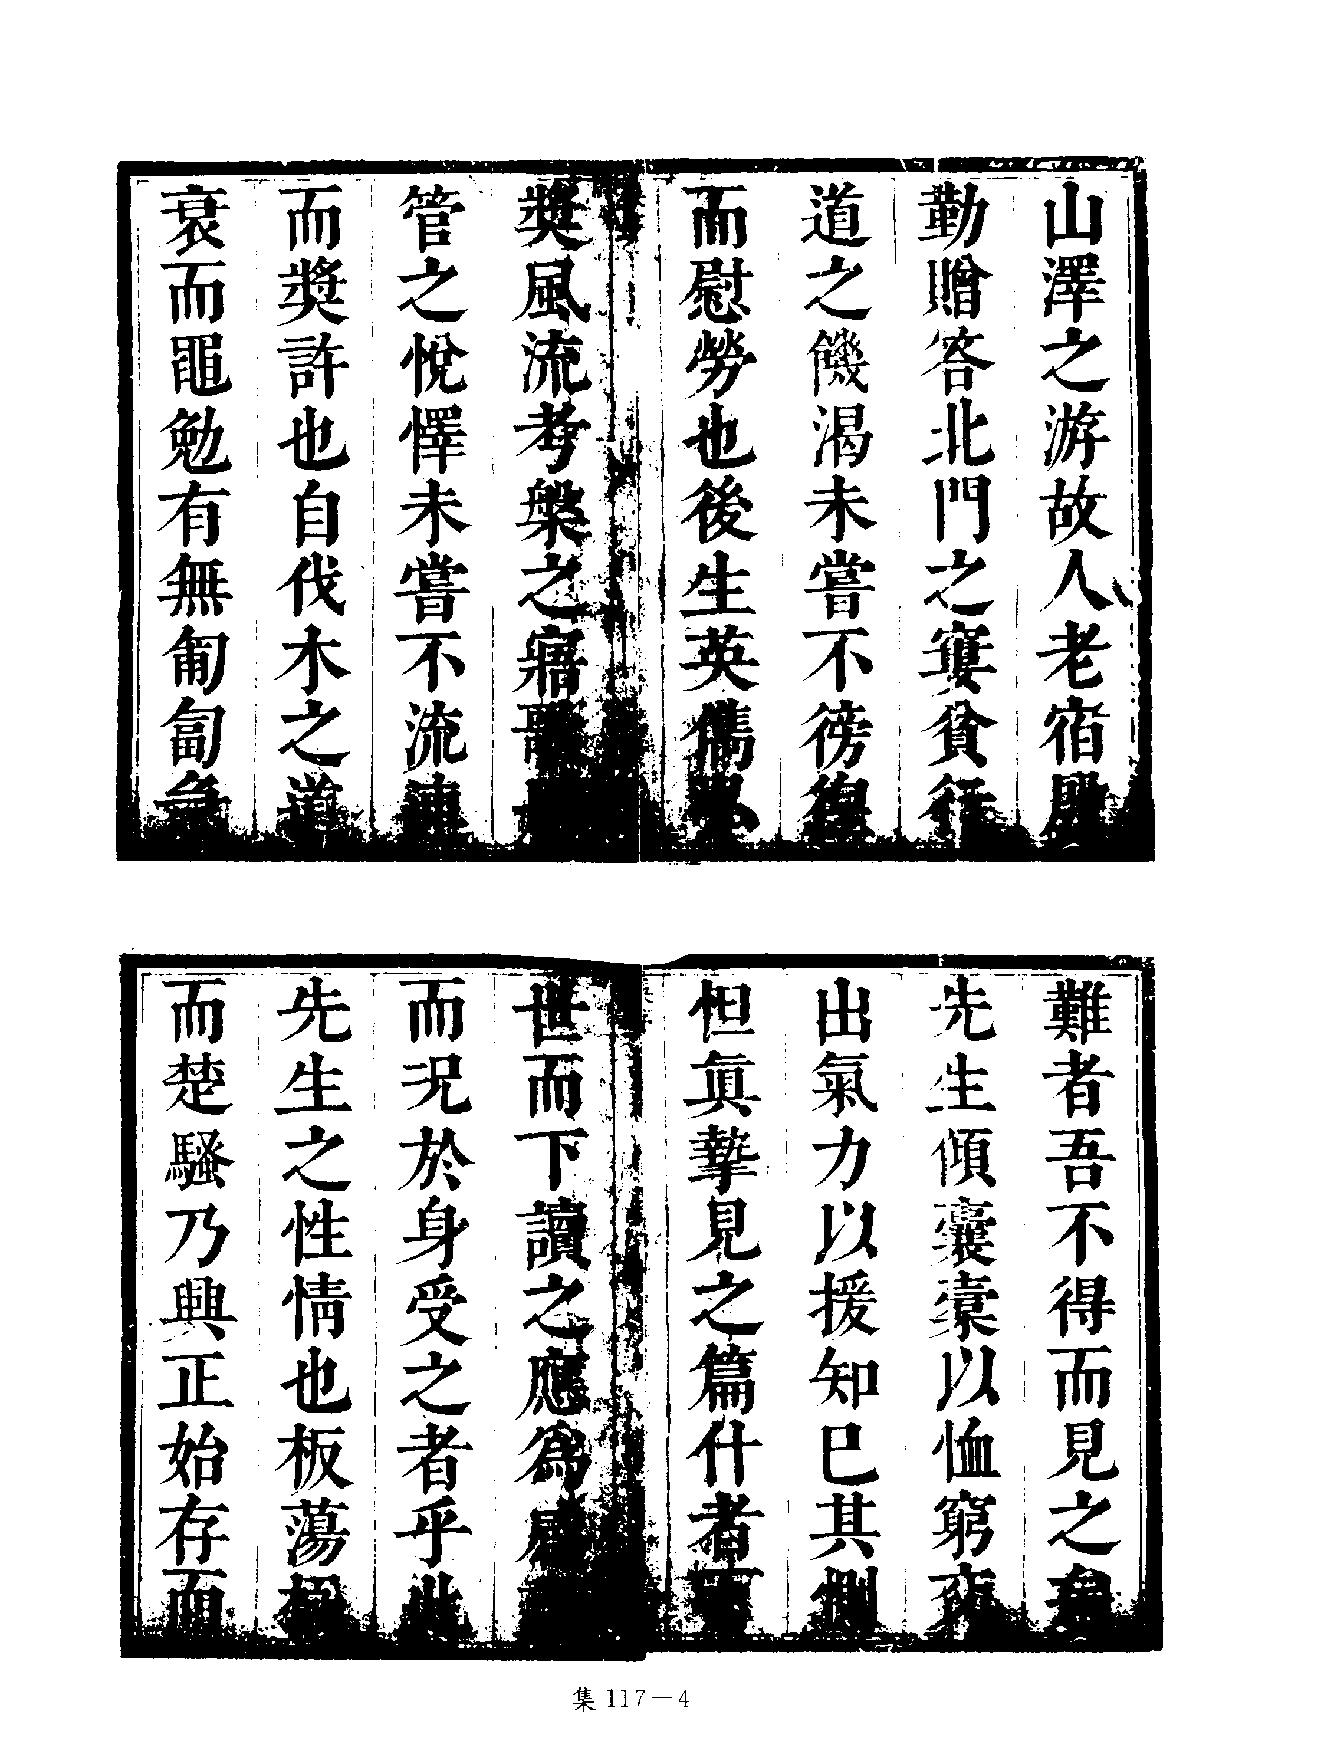 山澤之游故人老宿殷
勤贈答北門之窶貧行
道之饑渴未嘗不徬徨
而慰勞也後生英儁
獎風流考槃之寤歌
管之悅懌未嘗不流連
而獎許也自伐木之道
衰而黽勉有無匍匐急
難者吾不得而見之矣
先生傾囊橐以恤窮交
出氣力以援知巳其惻
怛眞摯見之篇什者百
世而下讀之應爲感
而況於身受之者乎此
先生之性情也板蕩極
而楚騷乃興正始存而
集 117－4